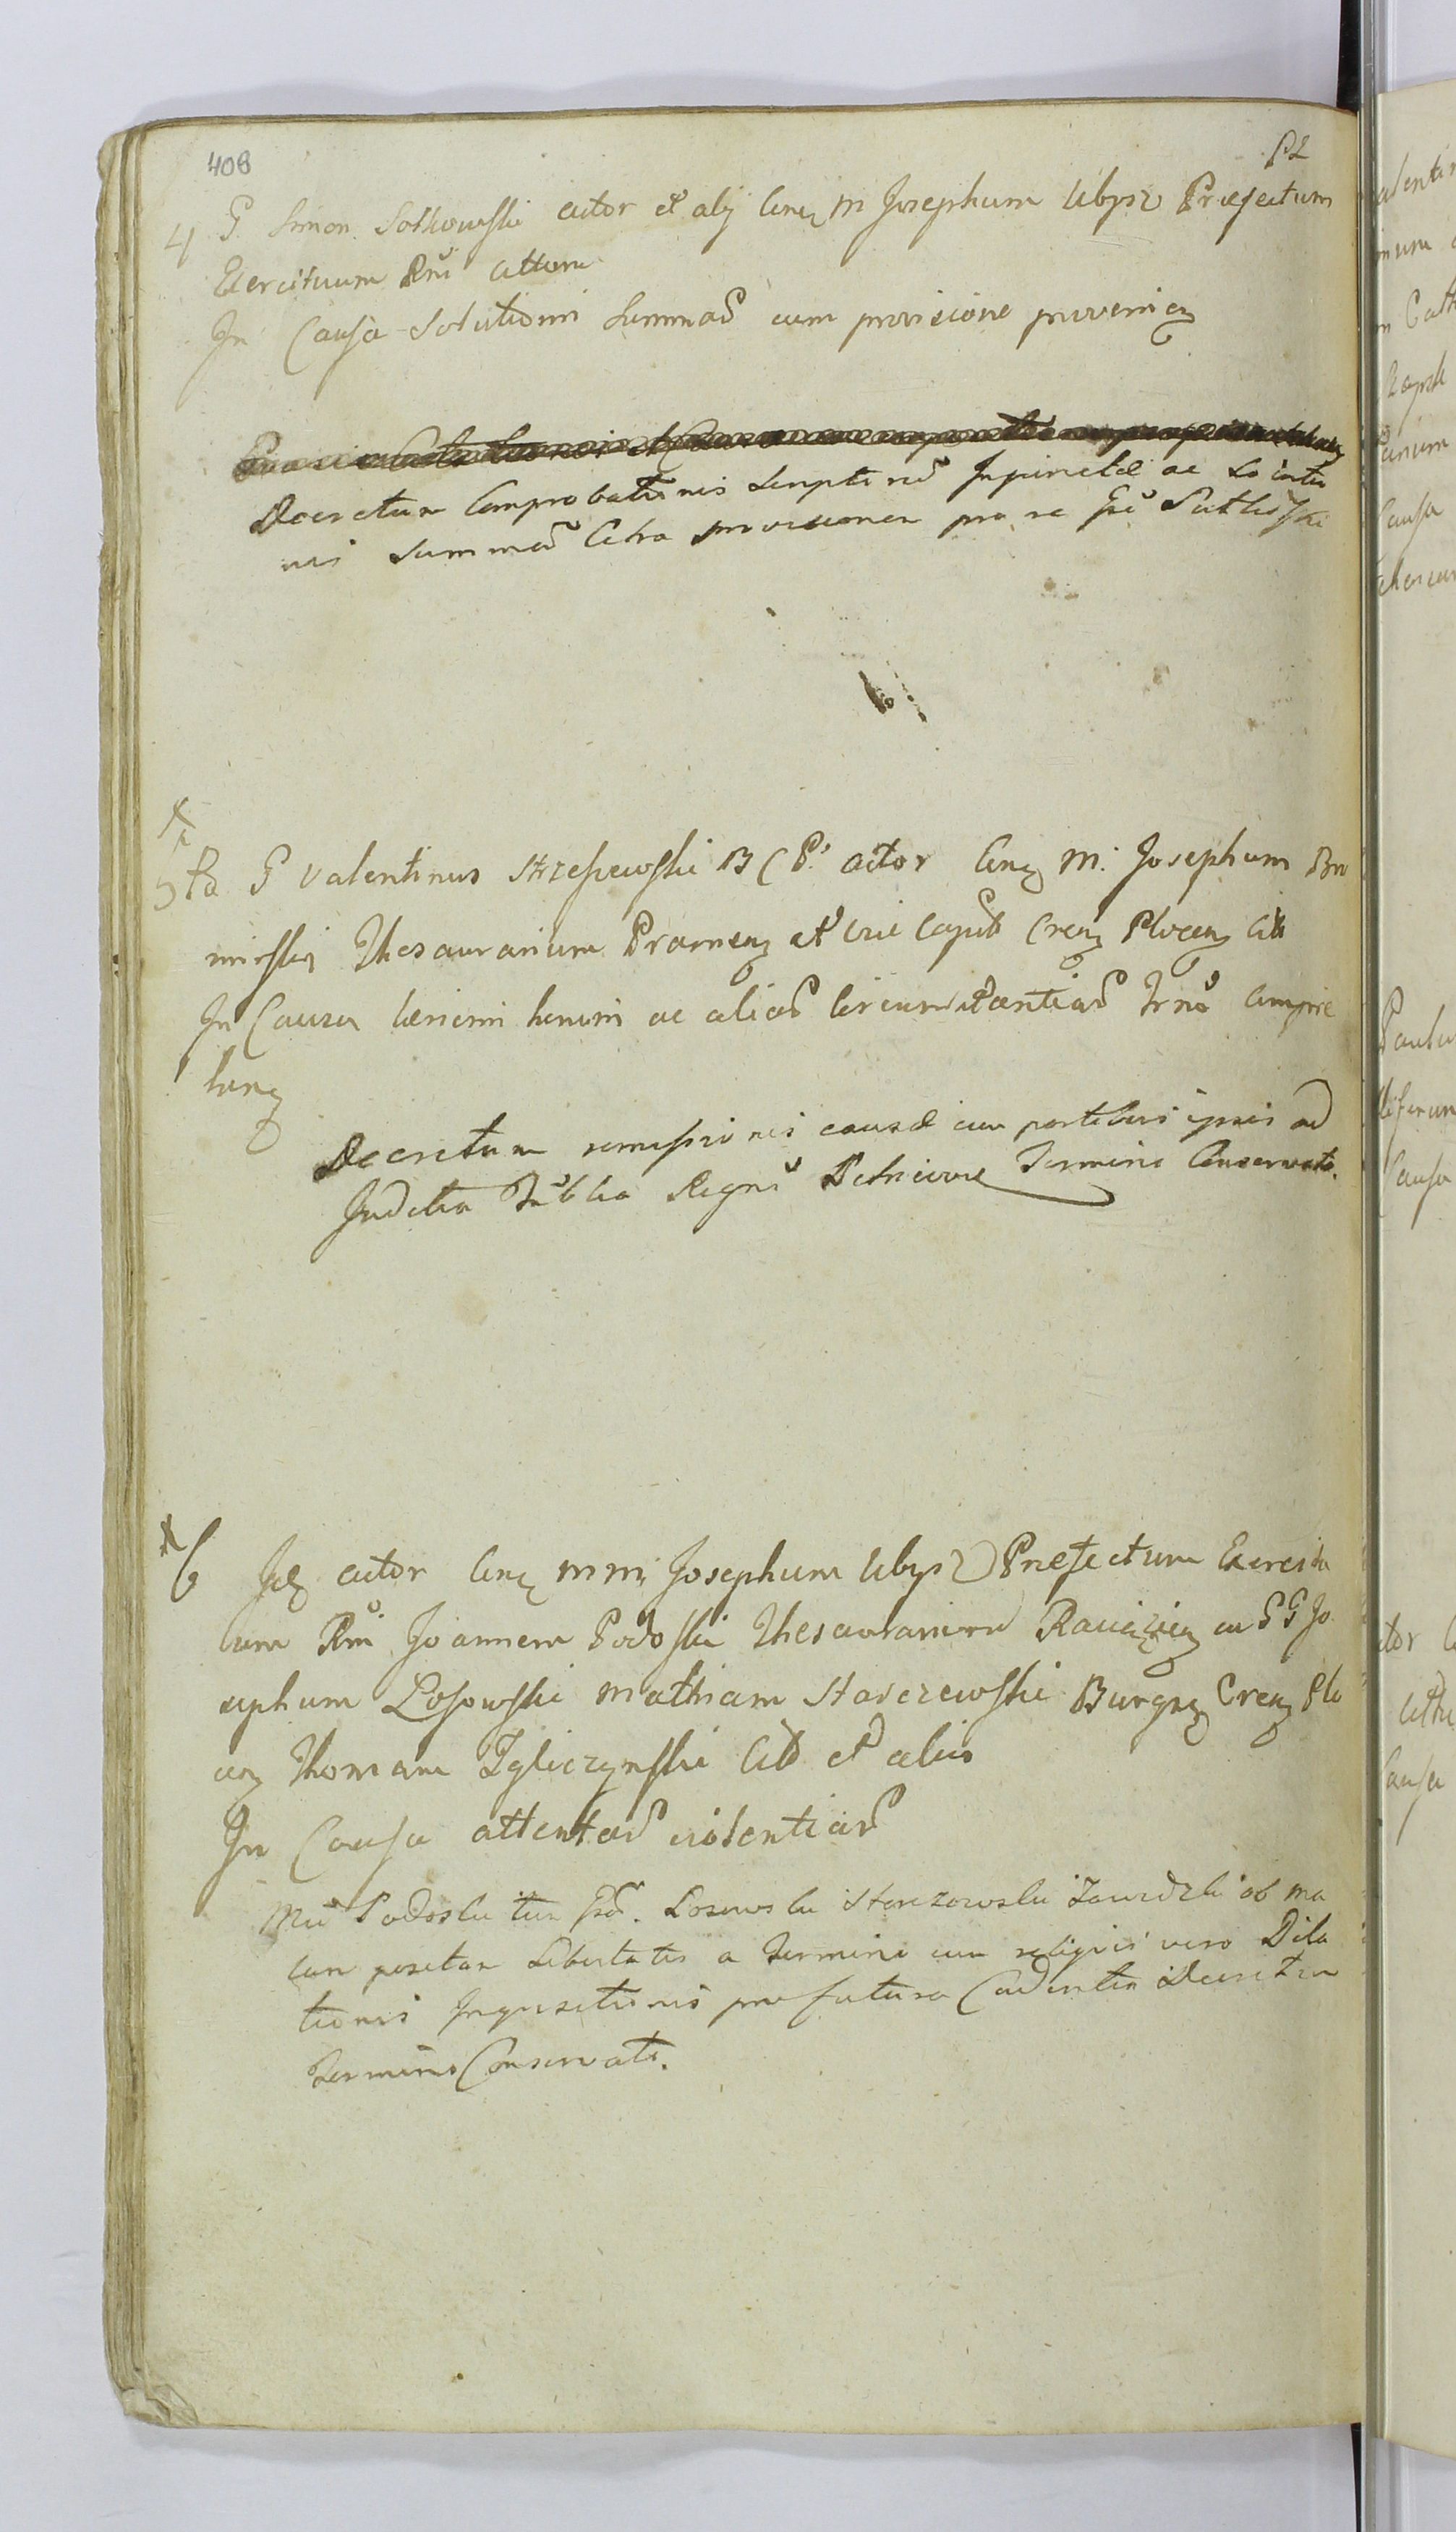 408
PL
4 G. Simon Sotkowski actor et alij Conq M Josephum Ubysz Præfectum
Exercituum Rni Cittum
In Causa Solutionis Summar cum provisione provenien
Decretum Comprobationis Scripturæ ac Solutio
nis Summar Citra provisionem pro re
5ta G Valentinus Strzeszewski B C P. actor Conq M. Josephum Bro
mirski Thesaurarium et Vice Capit Cren Plocen Citt
In Causa ac aliar Circumstantiar Trno Compre
hen
Decretum remissionis causæ cum partibus ipsis ad
Judicia Tublia Regni Petricoviæ Termino Conservato.
6 Idem actor Conq MM Josephum Ubysz Præfectum Exercitu
um Rni Joannem Podoski Thesaurarium Raciązien ac GG Jo
sephum Losowski Mathiam Starczewski Burgrq Cren Plo
cen Thomam Zgliczynski Citt et alios
In Causa attentar violentiar
Mci Podoski tum Losowski Starczowski Zawidzki ob ma
lam positam Libertatis a Termino cum reliquis vero Dila
tionis Inquisitionis pro futura Cadentia Decretum
Termino Conservato.